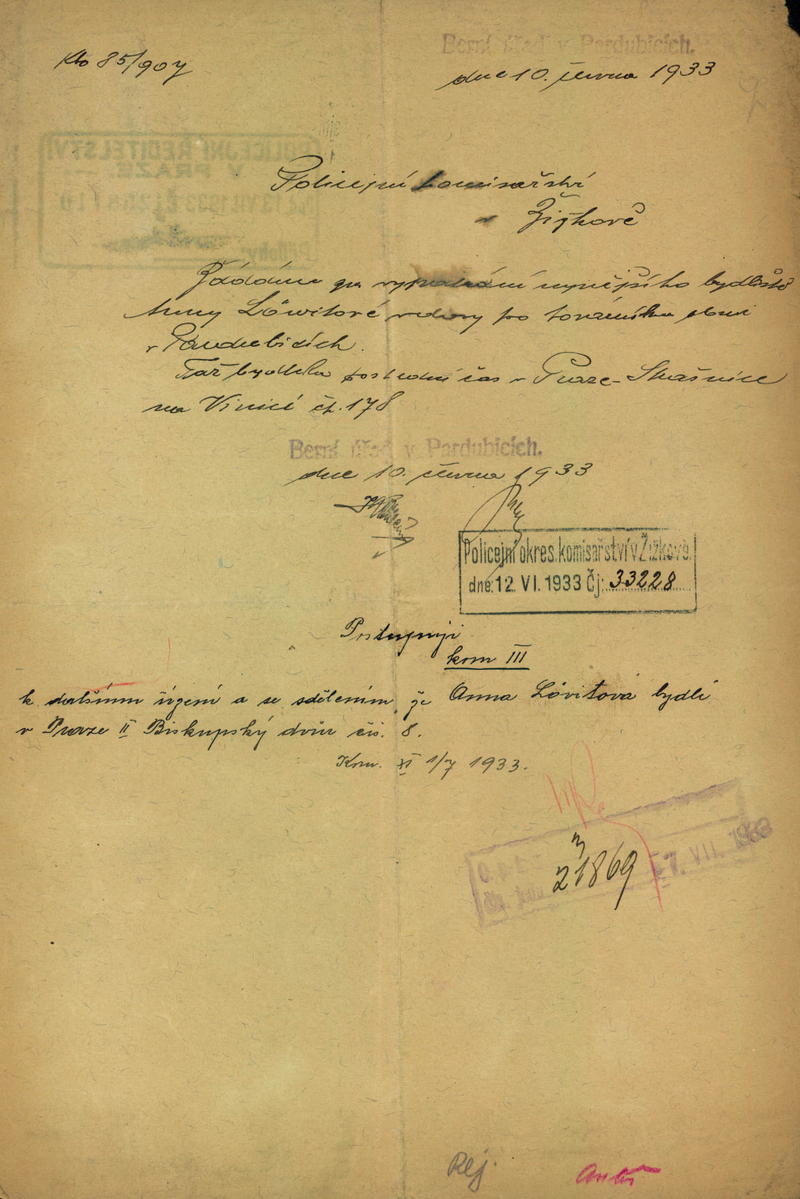 Berní úřad v Pardubicích.
85/907
dne 10. června 1933
POLICEJNÍ ŘEDITELSTVÍ
V PRAZE.
Policejní komisařství
Žižkově
Žádáme za vypátrání nynějšího bydliště
Anny Löwitové vdovy po továrníku obuvi
v Pardubicích.
Táž bydlela poslední čas v Praze-Strašnice
na Vinici čt. 178
Berní úřad v Pardubicích.
dne 10. června 1933
Policejní okres. komisařství v Žižkově.
dne: 12. VI. 1933 Čj: 33228
Postupuji
kom III
k dalšímu řízení a se sdělením, že Anna Lövitová bydlí
v Praze II Biskupský dvůr čís. 8.
Kom. XI 1/7 1933.
21869
VII. 1933
Rej.